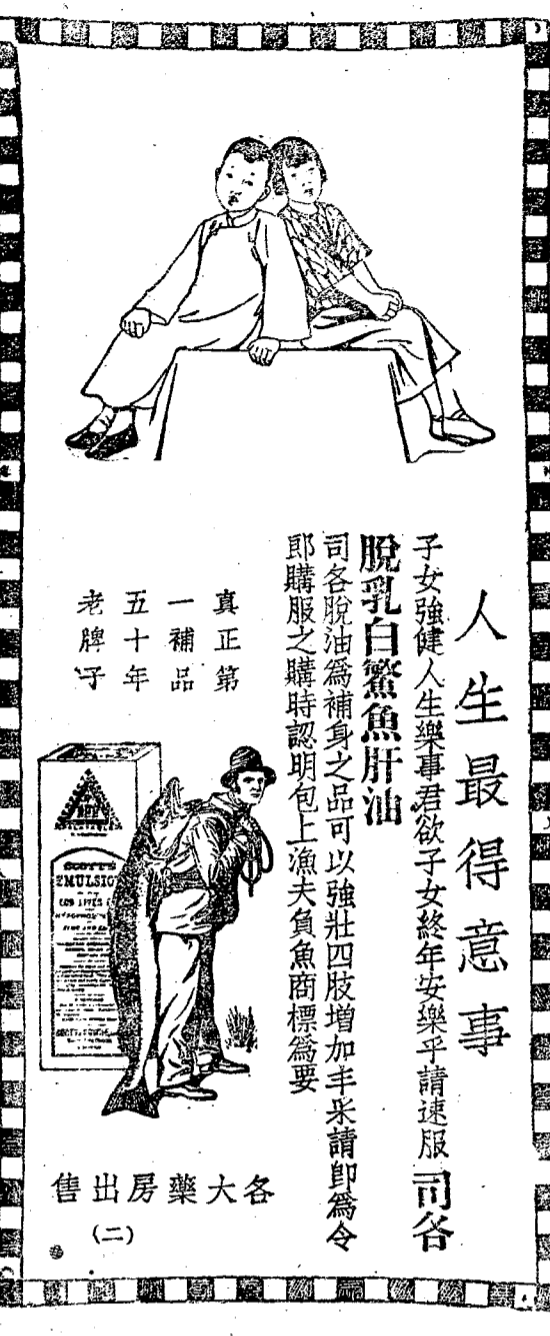 人生最得意事
子女強健人生樂事君欲子女終年安樂乎請速服司各
脫乳白鰵魚肝油
司各脫油爲補身之品可以強壯四肢增加丰采請卽爲令
郎購服之購時認明包上漁夫負魚商標爲要
真正第
一補品
五十年
老牌子
SCOTT'S
EMULSIO
COD LIVER
各大藥房出售
(二)